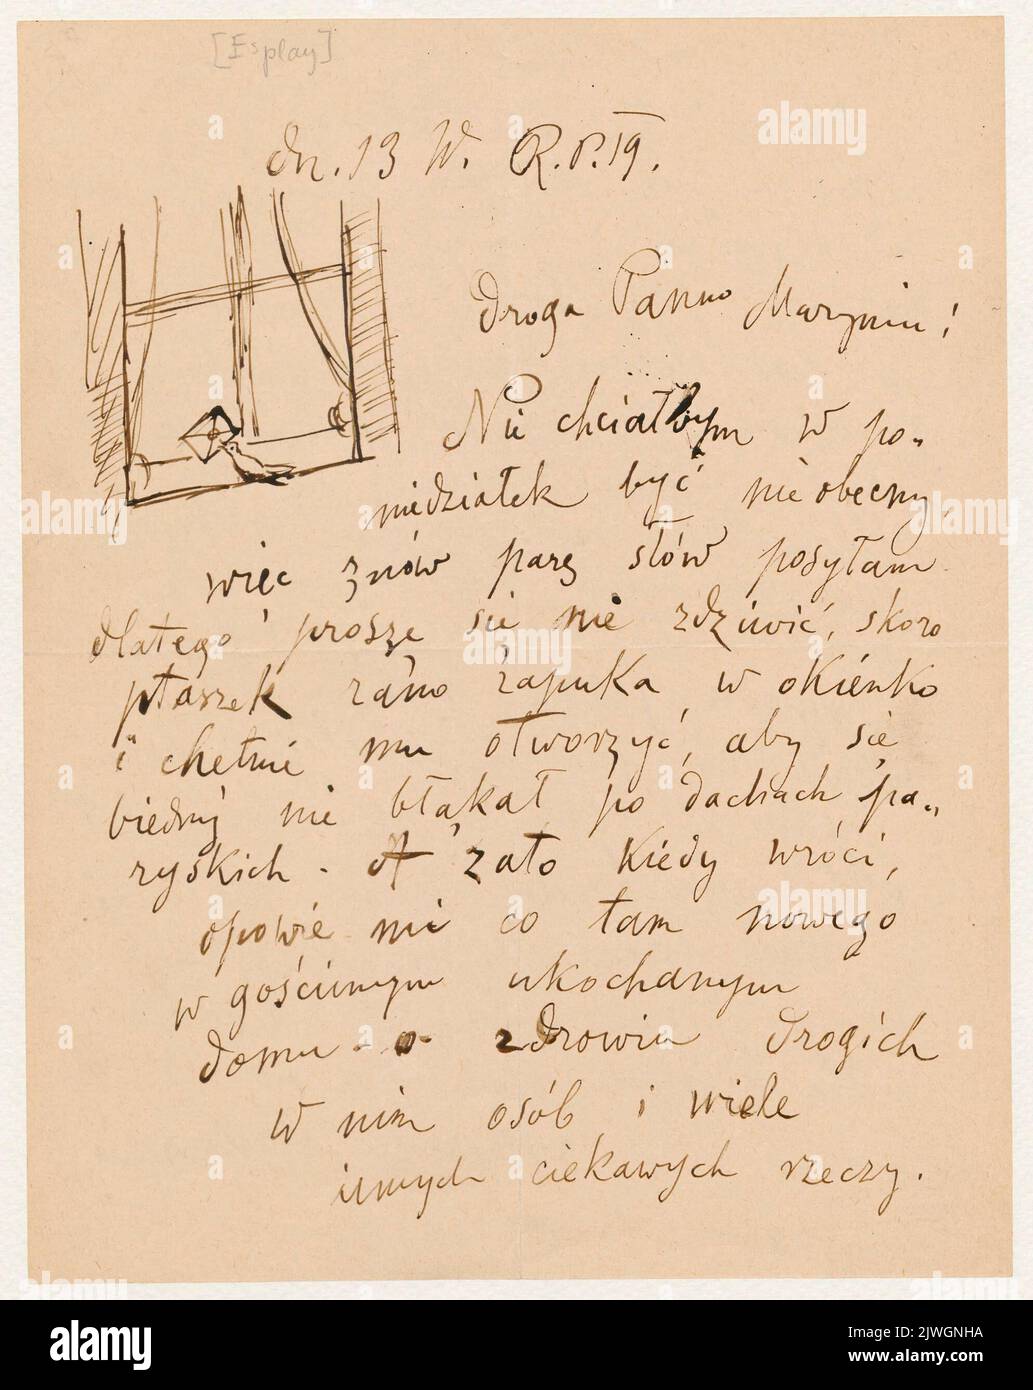 [Esplay]
dn. 13 W. R.P. 19.
Droga Panno Maryniu!
Nie chciałbym w po-
niedziałek być nieobecny,
więc znów parę słów posyłam
dlatego proszę się nie zdziwić, skoro
ptaszek rano zapuka w okienko
i chętnie mu otworzyć, aby się
biedny nie błąkał po dachach pa-
ryskich. A zato kiedy wróci,
opowie mi co tam nowego
w gościnnym ukochanym
domu - o zdrowiu drogich
w nim osób i wiele
innych ciekawych rzeczy.
alamy
Image ID: 2JWGNHA
www.alamy.com